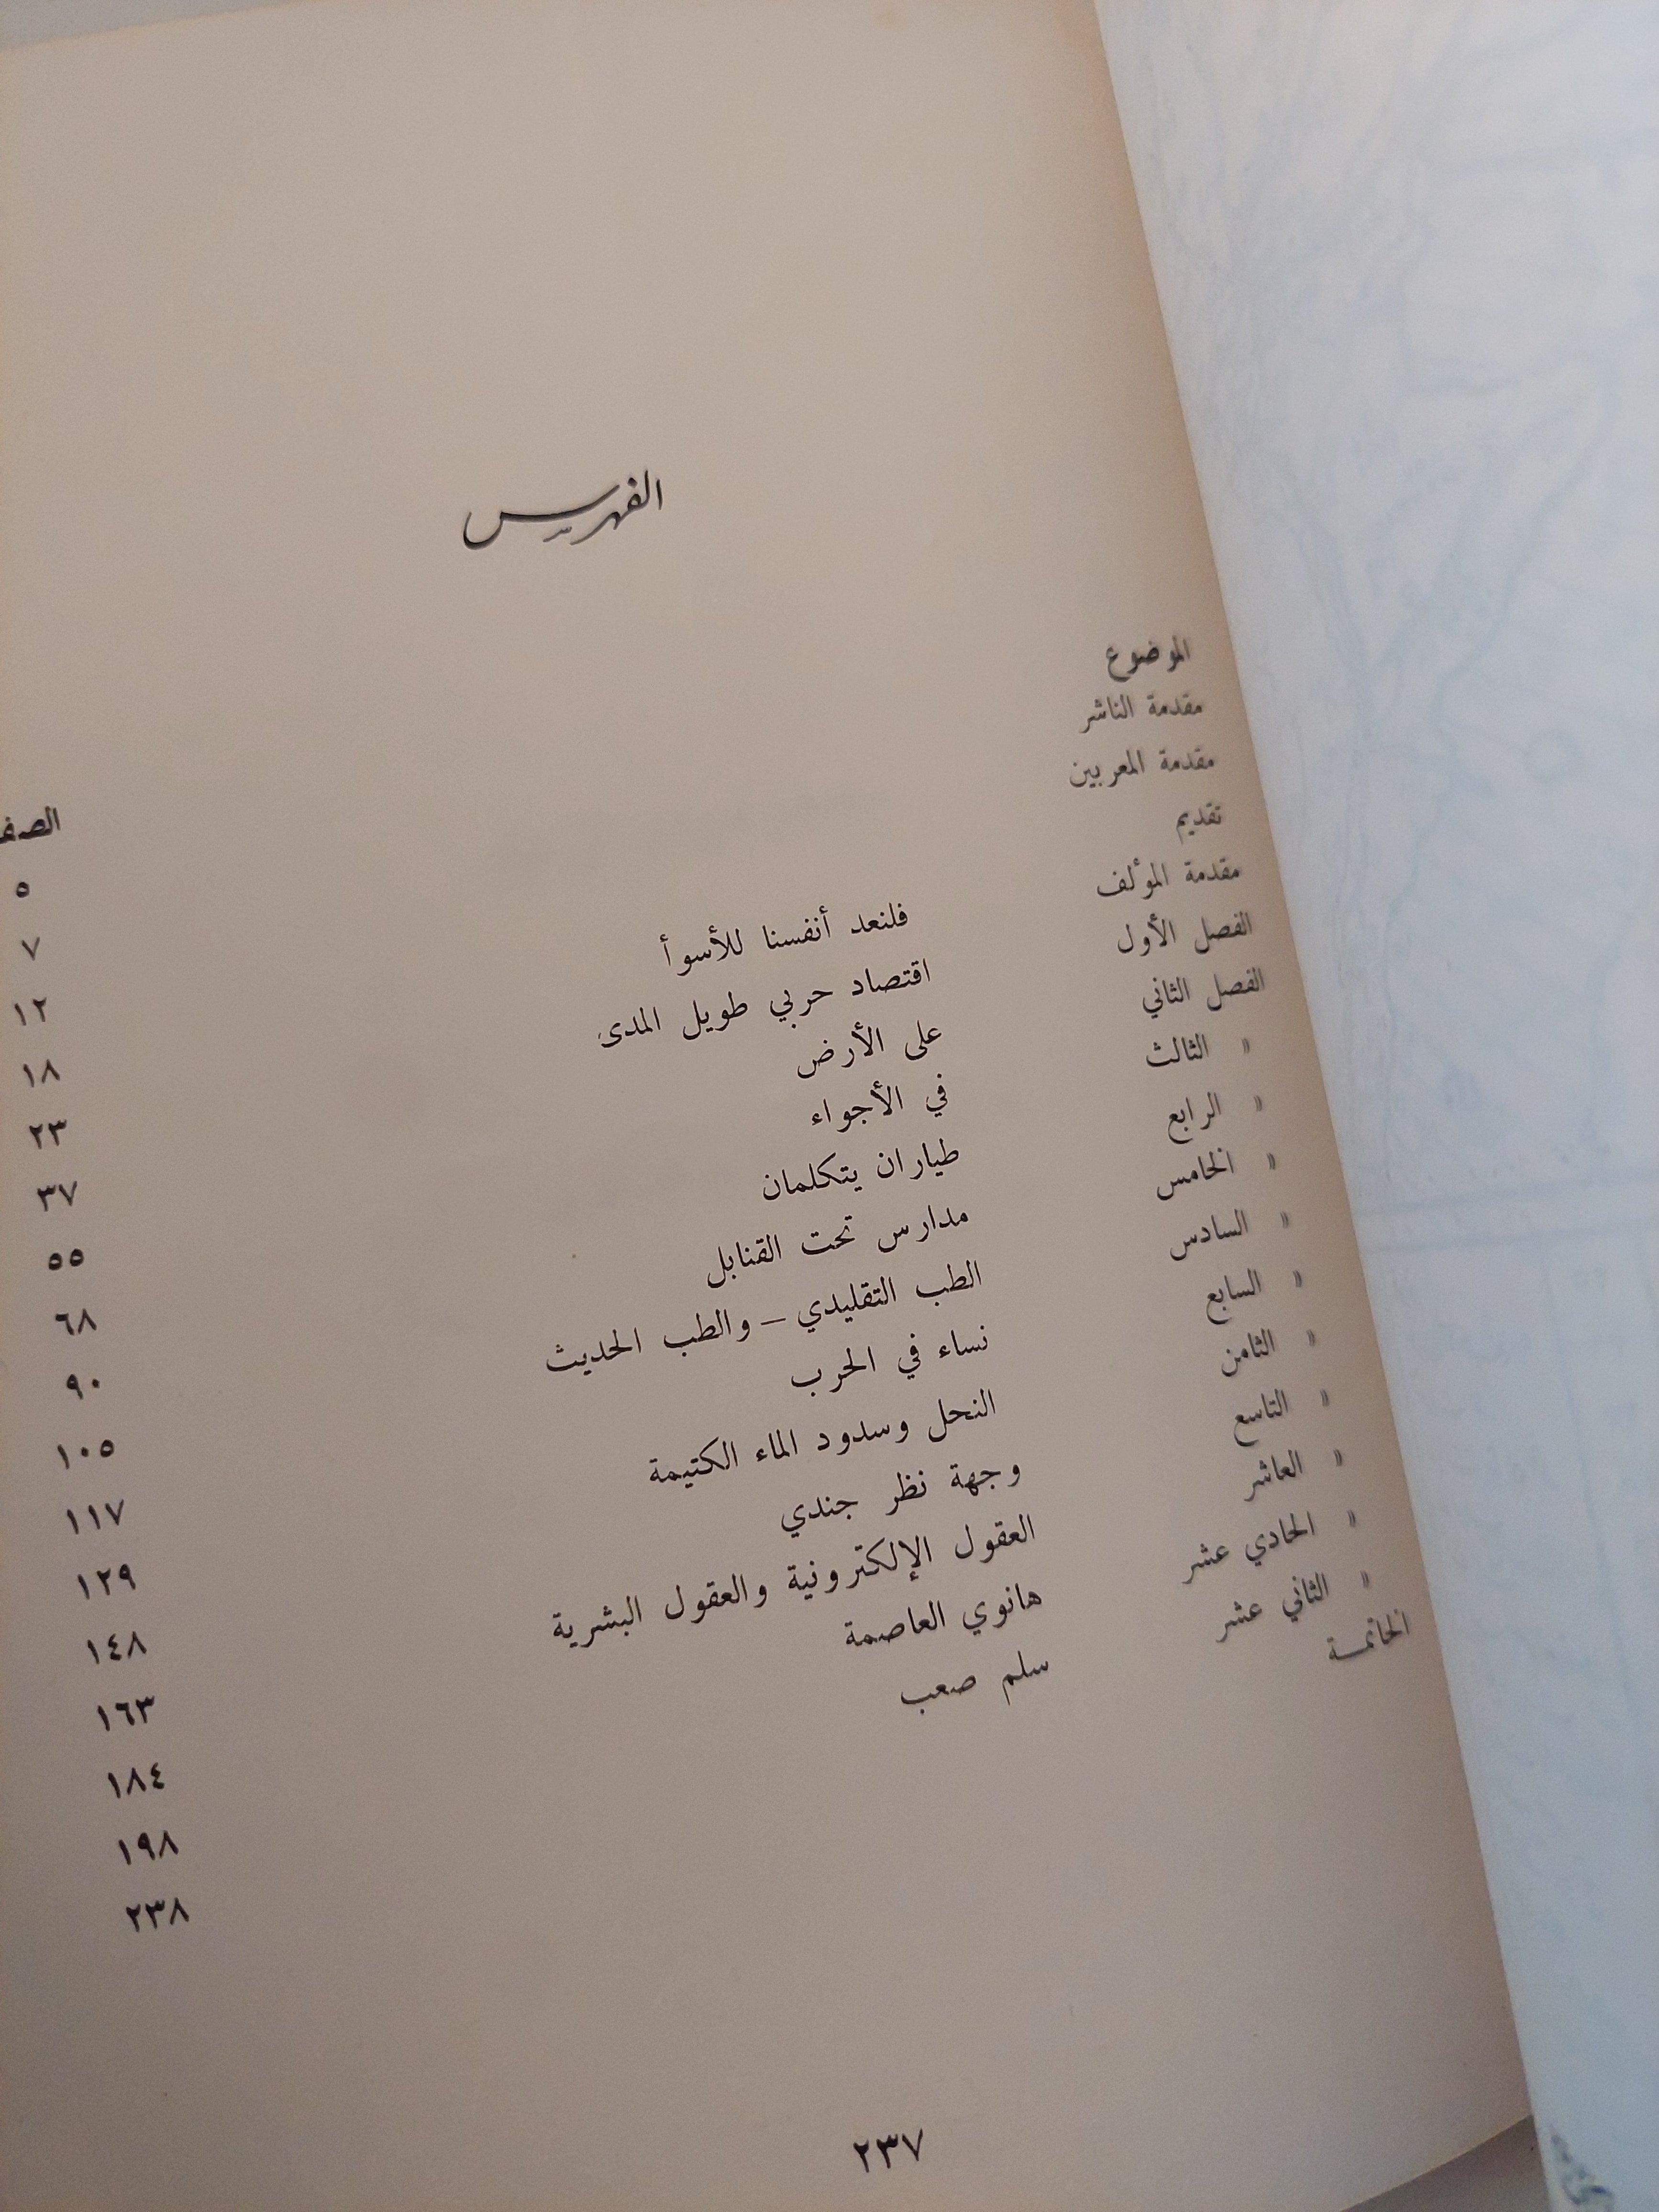 الفهرس
الموضوع
مقدمة الناشر ٥
مقدمة المعربين ٧
تقديم ١٢
مقدمة المؤلف ١٨
الفصل الأول فلنعد أنفسنا للأسوأ ٢٣
الفصل الثاني اقتصاد حربي طويل المدى ٣٧
« الثالث على الأرض ٥٥
« الرابع في الأجواء ٦٨
« الخامس طياران يتكلمان ٩٠
« السادس مدارس تحت القنابل ١٠٥
« السابع الطب التقليدي – والطب الحديث ١١٧
« الثامن نساء في الحرب ١٢٩
« التاسع النحل وسدود الماء الكتيمة ١٤٨
« العاشر وجهة نظر جندي ١٦٣
« الحادي عشر العقول الإلكترونية والعقول البشرية ١٨٤
« الثاني عشر هانوي العاصمة ١٩٨
الخاتمـة سلم صعب ٢٣٨
٢٣٧